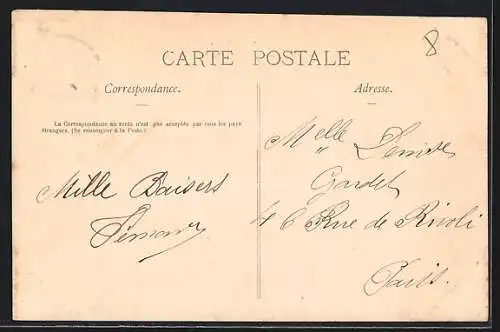 8
CARTE POSTALE
Correspondance.
La Correspondance au recto n'est pas acceptée par tous les pays
étrangers. (Se renseigner à la Poste.)
Mille Baisers
Adresse.
Melle Denise
Gardet
46 Rue de Rivoli
Paris.